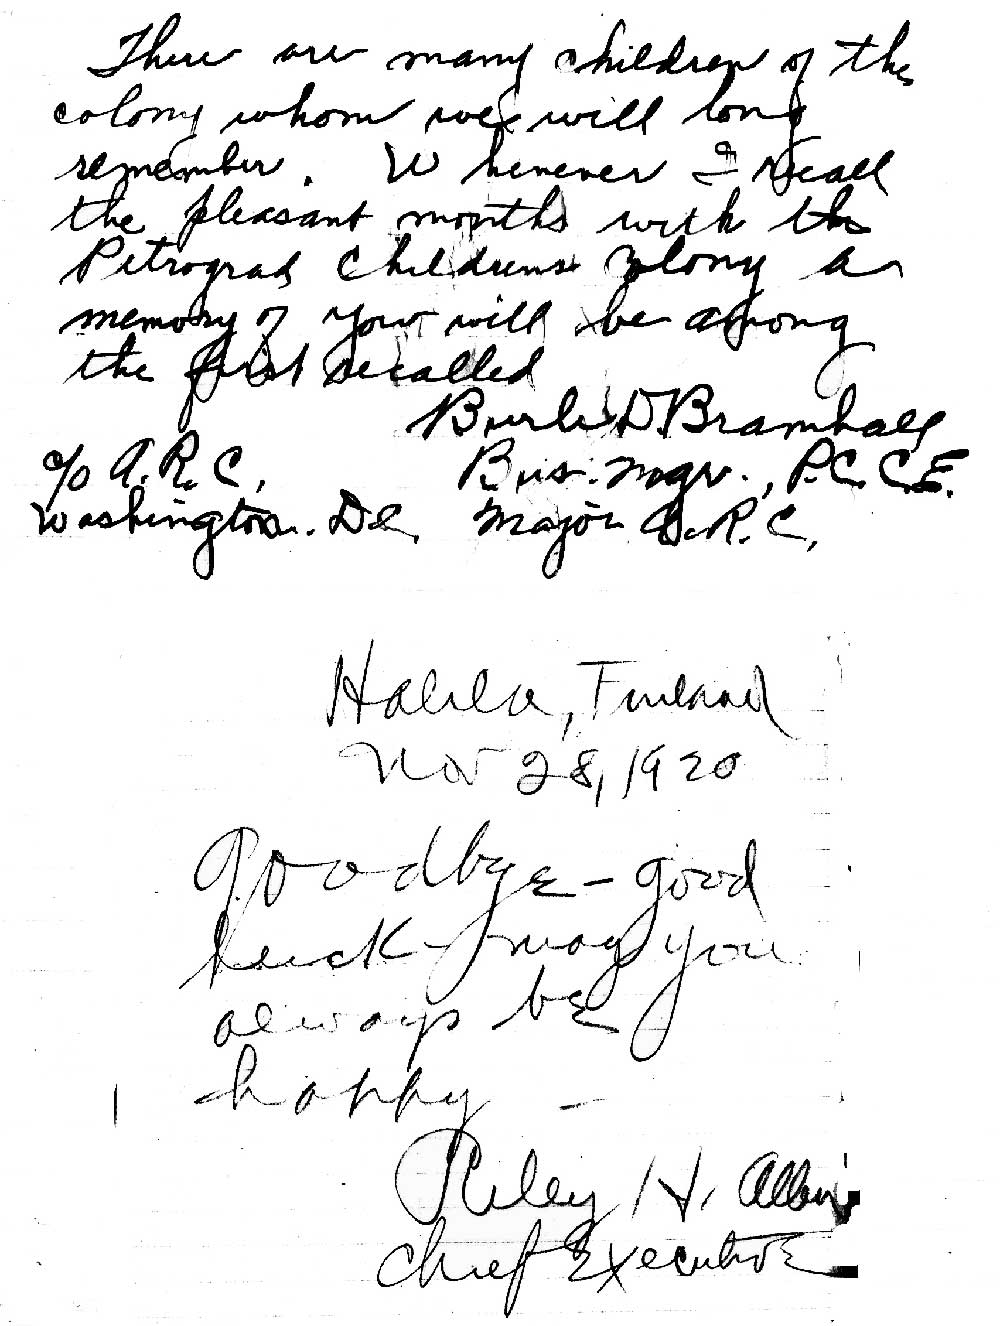 There are many children of the
colony whom we will long
remember. Whenever I recall
the pleasant months with the
Petrograd Childrens Colony a
memory of you will be among
the first recalled
Burle D Bramhall
c/o A.R.C, Bus. Mgr., P.C.C.E.
Washington. D.C. Major A.R.C,
Halila, Finland
Nov 28, 1920
Goodbye - good
luck - may you
always be
happy -
Riley H. Allen
Chief Executive